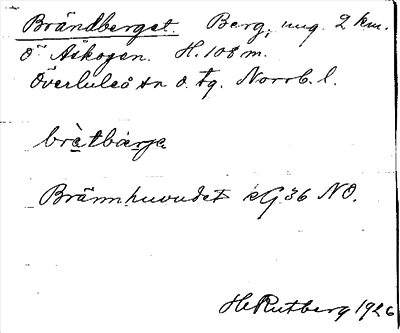 Brändberget. Berg, ung. 2 km.
O Åskogen. H. 108 m.
Överluleå sn o. tg. Norrb. l.
bràtbærje
Brännhuvudet kG 36 NO.
H Rutberg 1926